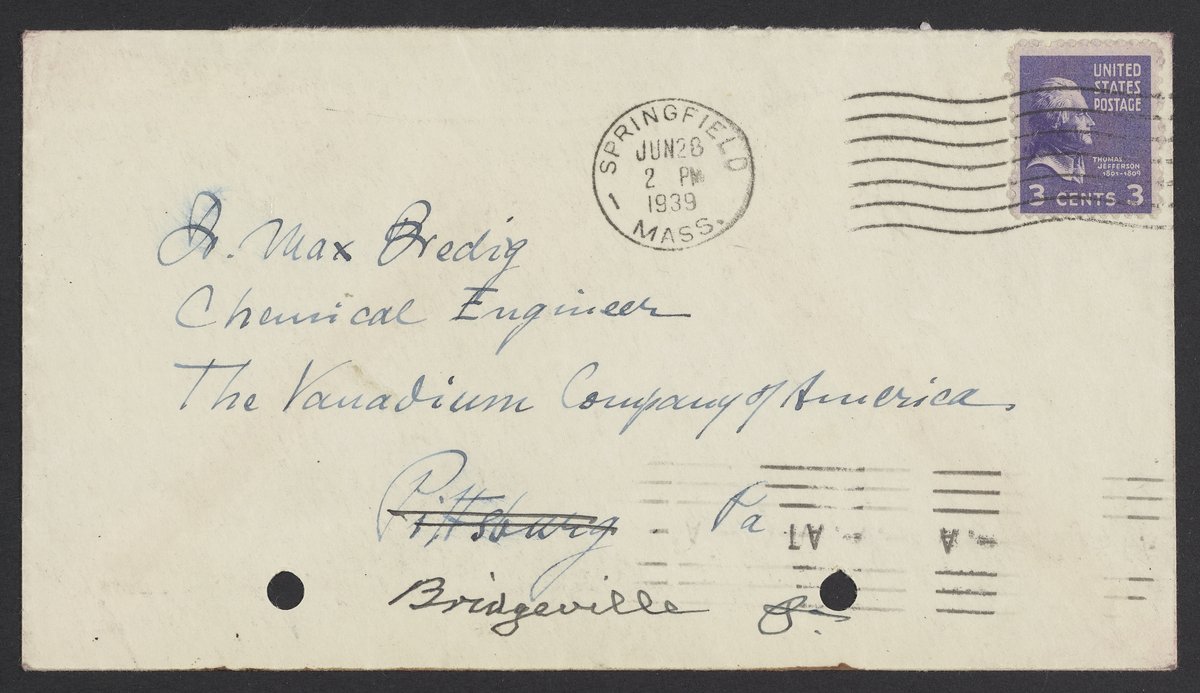 UNITED
STATES
POSTAGE
THOMAS
JEFFERSON
1801-1809
3 CENTS 3
SPRINGFIELD
JUN 28
2 PM
1939
MASS.
1
Dr. Max Bredig
Chemical Engineer
The Vanadium Company of America
Pittsburg Pa
Bridgeville Pa.